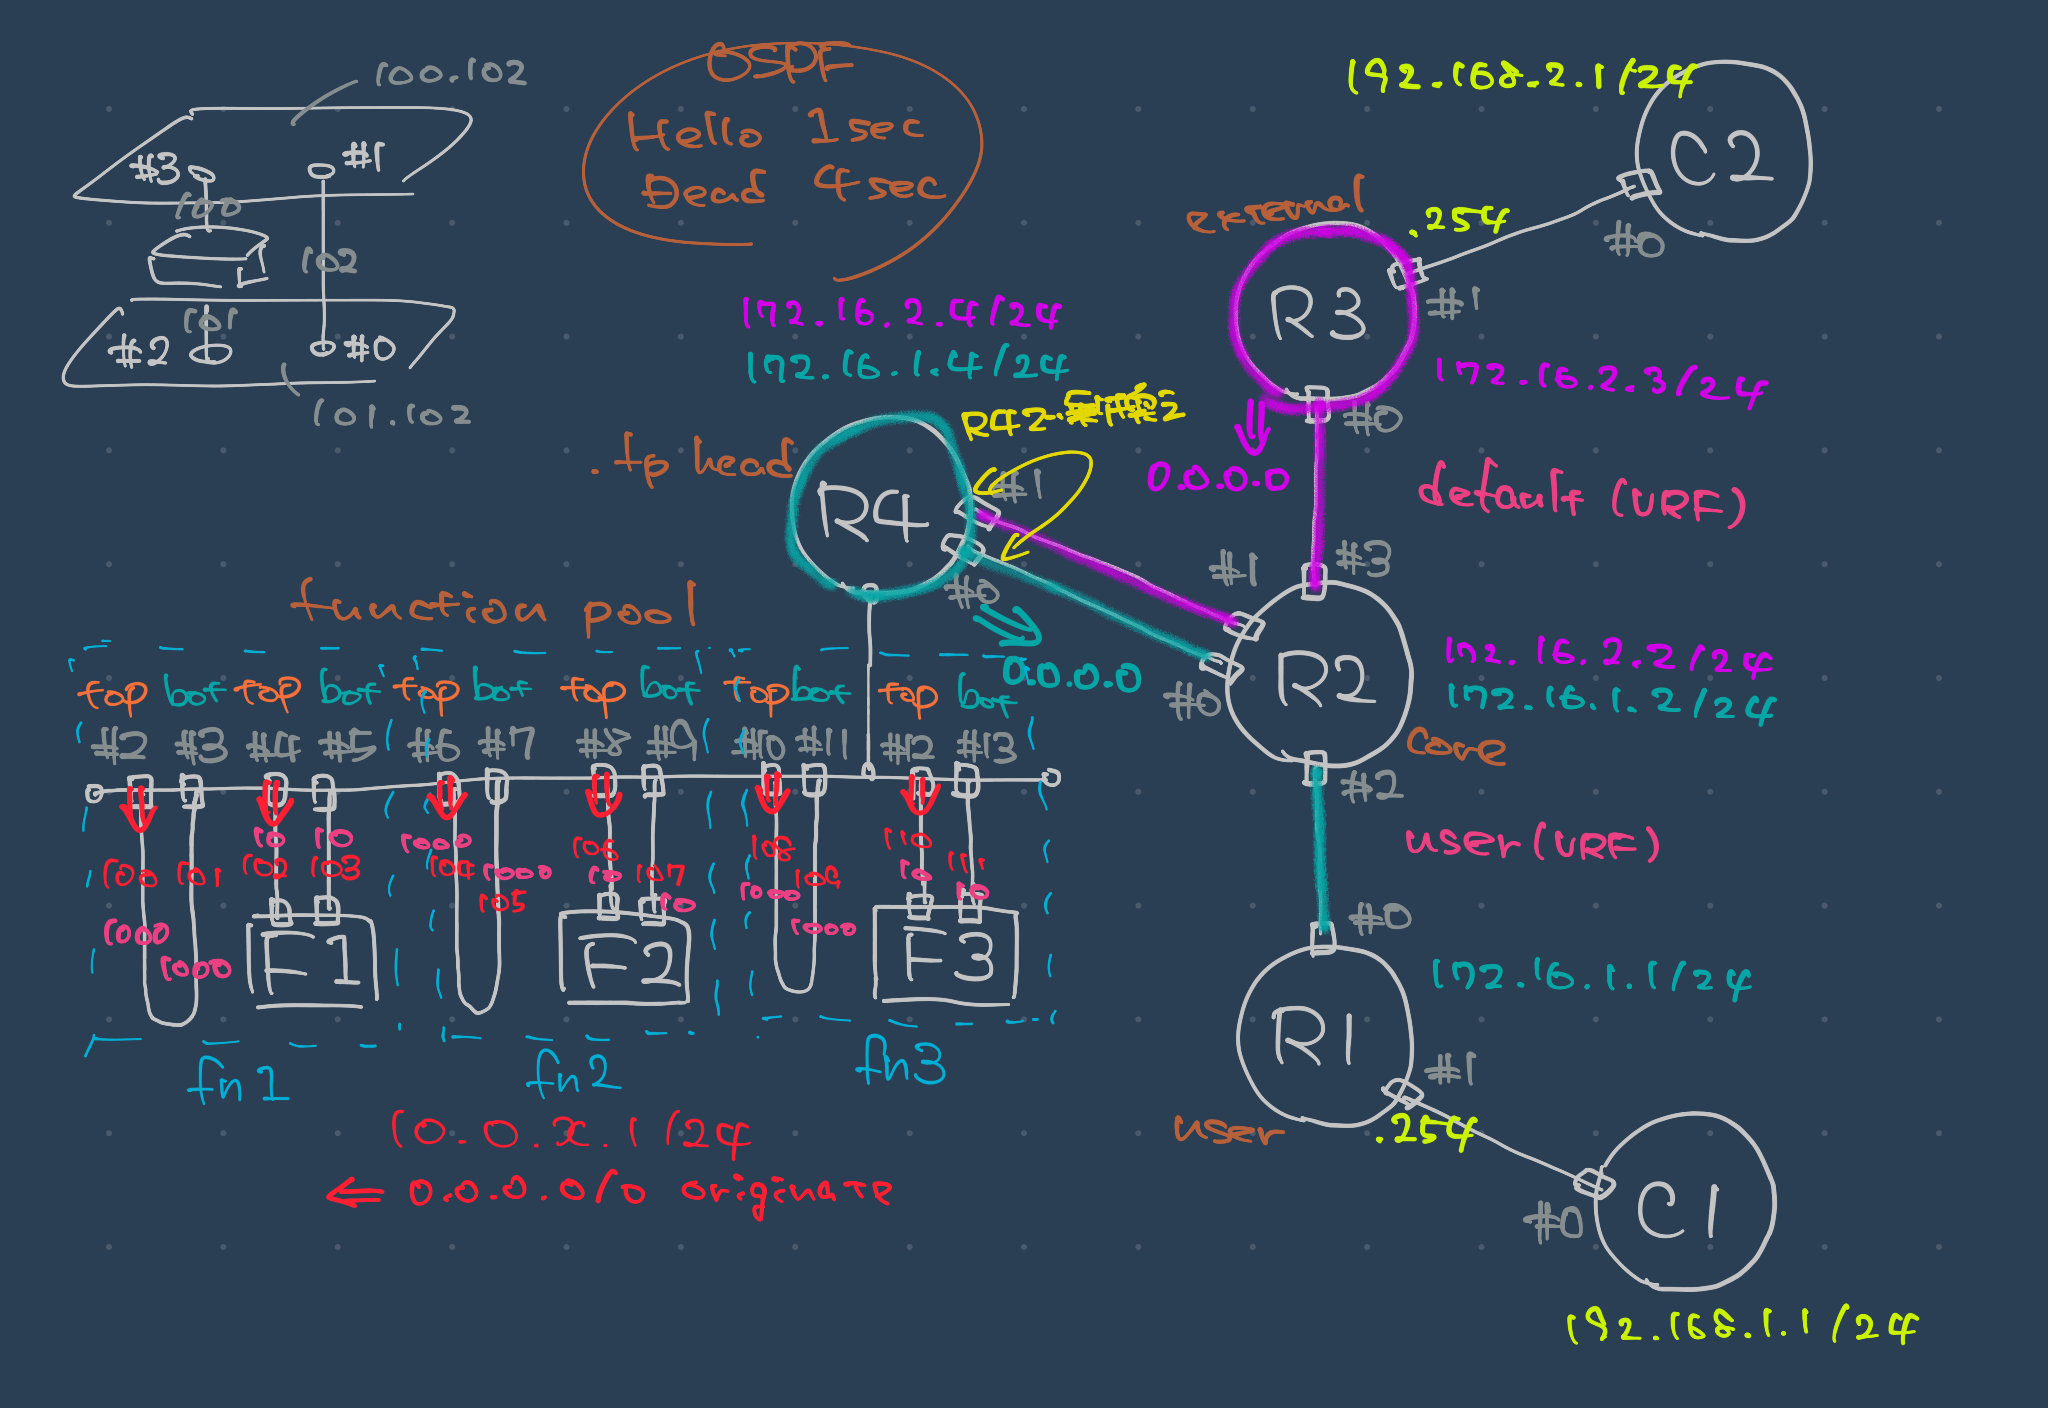 100.102
#3
#1
100
102
101
#2
#0
101.102
OSPF
Hello 1sec
Dead 4sec
192.168.2.1/24
C2
#0
external
.254
R3
#1
172.16.2.3/24
#0
0.0.0.0
default (VRF)
172.16.2.4/24
172.16.1.4/24
.fp head
R4
#1
#0
0.0.0.0
#1
#3
R2
#0
172.16.2.2/24
172.16.1.2/24
core
#2
user (VRF)
#0
172.16.1.1/24
R1
#1
user
.254
C1
#0
192.168.1.1/24
function pool
top bot top bot top bot top bot top bot top bot
#2 #3 #4 #5 #6 #7 #8 #9 #10 #11 #12 #13
100 101
1000 1000
10 10
102 103
F1
1000 1000
104 105
106 107
10 10
F2
108 109
1000 1000
110 111
10 10
F3
fn1 fn2 fn3
10.0.x.1/24
⇐ 0.0.0.0/0 originate